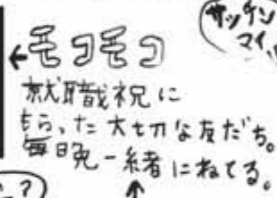 サッチン
マイ
←モコモコ
就職祝に
もらった大切な友だち。
毎日晩一緒にねてる。